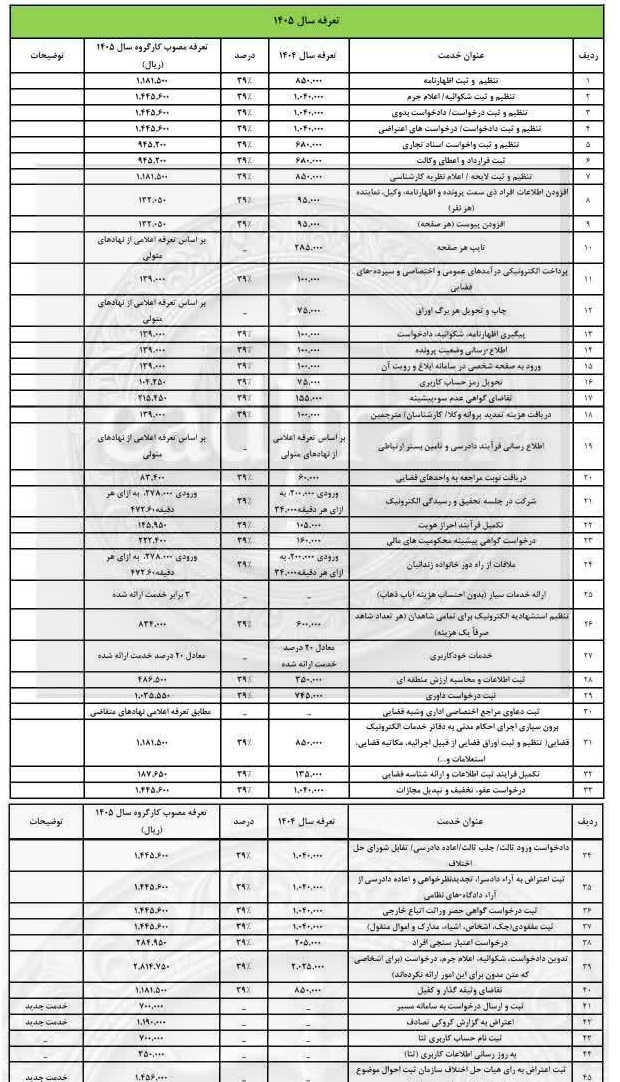 تعرفه سال ۱۴۰۵
ردیف عنوان خدمت تعرفه سال ۱۴۰۴ درصد تعرفه مصوب کارگروه سال ۱۴۰۵ (ریال) توضیحات
۱ تنظیم و ثبت اظهارنامه ۸۵۰,۰۰۰ ۳۹٪ ۱,۱۸۱,۵۰۰
۲ تنظیم و ثبت شکوائیه/ اعلام جرم ۱,۰۴۰,۰۰۰ ۳۹٪ ۱,۴۴۵,۶۰۰
۳ تنظیم و ثبت درخواست/ دادخواست بدوی ۱,۰۴۰,۰۰۰ ۳۹٪ ۱,۴۴۵,۶۰۰
۴ تنظیم و ثبت دادخواست/ درخواست های اعتراضی ۱,۰۴۰,۰۰۰ ۳۹٪ ۱,۴۴۵,۶۰۰
۵ تنظیم و ثبت واخواست اسناد تجاری ۶۸۰,۰۰۰ ۳۹٪ ۹۴۵,۲۰۰
۶ ثبت قرارداد و اعطای وکالت ۶۸۰,۰۰۰ ۳۹٪ ۹۴۵,۲۰۰
۷ تنظیم و ثبت لایحه / اعلام نظریه کارشناسی ۸۵۰,۰۰۰ ۳۹٪ ۱,۱۸۱,۵۰۰
۸ افزودن اطلاعات افراد ذی سمت پرونده و اظهارنامه، وکیل، نماینده (هر نفر) ۹۵,۰۰۰ ۳۹٪ ۱۳۲,۰۵۰
۹ افزودن پیوست (هر صفحه) ۹۵,۰۰۰ ۳۹٪ ۱۳۲,۰۵۰
۱۰ تایپ هر صفحه ۲۸۵,۰۰۰ _ بر اساس تعرفه اعلامی از نهادهای متولی
۱۱ پرداخت الکترونیکی درآمدهای عمومی و اختصاصی و سپرده-های قضایی ۱۰۰,۰۰۰ ۳۹٪ ۱۳۹,۰۰۰
۱۲ چاپ و تحویل هر برگ اوراق ۷۵,۰۰۰ _ بر اساس تعرفه اعلامی از نهادهای متولی
۱۳ پیگیری اظهارنامه، شکوائیه، دادخواست ۱۰۰,۰۰۰ ۳۹٪ ۱۳۹,۰۰۰
۱۴ اطلاع-رسانی وضعیت پرونده ۱۰۰,۰۰۰ ۳۹٪ ۱۳۹,۰۰۰
۱۵ ورود به صفحه شخصی در سامانه ابلاغ و رویت آن ۱۰۰,۰۰۰ ۳۹٪ ۱۳۹,۰۰۰
۱۶ تحویل رمز حساب کاربری ۷۵,۰۰۰ ۳۹٪ ۱۰۴,۲۵۰
۱۷ تقاضای گواهی عدم سوءپیشینه ۱۵۵,۰۰۰ ۳۹٪ ۲۱۵,۴۵۰
۱۸ دریافت هزینه تمدید پروانه وکلا/ کارشناسان/ مترجمین ۱۰۰,۰۰۰ ۳۹٪ ۱۳۹,۰۰۰
۱۹ اطلاع رسانی فرآیند دادرسی و تامین بستر ارتباطی بر اساس تعرفه اعلامی از نهادهای متولی _ بر اساس تعرفه اعلامی از نهادهای متولی
۲۰ دریافت نوبت مراجعه به واحدهای قضایی ۶۰,۰۰۰ ۳۹٪ ۸۳,۴۰۰
۲۱ شرکت در جلسه تحقیق و رسیدگی الکترونیک ورودی ۲۰۰,۰۰۰، به ازای هر دقیقه ۳۴,۰۰۰ ۳۹٪ ورودی ۲۷۸,۰۰۰، به ازای هر دقیقه ۴۷۲۶۰
۲۲ تکمیل فرآیند احراز هویت ۱۰۵,۰۰۰ ۳۹٪ ۱۴۵,۹۵۰
۲۳ درخواست گواهی پیشینه محکومیت های مالی ۱۶۰,۰۰۰ ۳۹٪ ۲۲۲,۴۰۰
۲۴ ملاقات از راه دور خانواده زندانیان ورودی ۲۰۰,۰۰۰، به ازای هر دقیقه ۳۴,۰۰۰ ۳۹٪ ورودی ۲۷۸,۰۰۰، به ازای هر دقیقه ۴۷۲۶۰
۲۵ ارائه خدمات سیار (بدون احتساب هزینه ایاب ذهاب) _ _ ۳ برابر خدمت ارائه شده
۲۶ تنظیم استشهادیه الکترونیک برای تمامی شاهدان (هر تعداد شاهد صرفاً یک هزینه) ۶۰۰,۰۰۰ ۳۹٪ ۸۳۴,۰۰۰
۲۷ خدمات خودکاربری معادل ۲۰ درصد خدمت ارائه شده _ معادل ۲۰ درصد خدمت ارائه شده
۲۸ ثبت اطلاعات و محاسبه ارزش منطقه ای ۳۵۰,۰۰۰ ۳۹٪ ۴۸۶,۵۰۰
۲۹ ثبت درخواست داوری ۷۴۵,۰۰۰ ۳۹٪ ۱,۰۳۵,۵۵۰
۳۰ ثبت دعاوی مراجع اختصاصی اداری وشبه قضایی _ _ مطابق تعرفه اعلامی نهادهای متقاضی
۳۱ برون سپاری اجرای احکام مدنی به دفاتر خدمات الکترونیک قضایی( تنظیم و ثبت اوراق قضایی از قبیل اجرائیه، مکاتبه قضایی، استعلامات و...) ۸۵۰,۰۰۰ ۳۹٪ ۱,۱۸۱,۵۰۰
۳۲ تکمیل فرایند ثبت اطلاعات و ارائه شناسه قضایی ۱۳۵,۰۰۰ ۳۹٪ ۱۸۷,۶۵۰
۳۳ درخواست عفو، تخفیف و تبدیل مجازات ۱,۰۴۰,۰۰۰ ۳۹٪ ۱,۴۴۵,۶۰۰
ردیف عنوان خدمت تعرفه سال ۱۴۰۴ درصد تعرفه مصوب کارگروه سال ۱۴۰۵ (ریال) توضیحات
۳۴ دادخواست ورود ثالث/ جلب ثالث/اعاده دادرسی/ تقابل شورای حل اختلاف ۱,۰۴۰,۰۰۰ ۳۹٪ ۱,۴۴۵,۶۰۰
۳۵ ثبت اعتراض به آراء دادسرا، تجدیدنظرخواهی و اعاده دادرسی از آراء دادگاه-های نظامی ۱,۰۴۰,۰۰۰ ۳۹٪ ۱,۴۴۵,۶۰۰
۳۶ ثبت درخواست گواهی حصر وراثت اتباع خارجی ۱,۰۴۰,۰۰۰ ۳۹٪ ۱,۴۴۵,۶۰۰
۳۷ ثبت مفقودی(چک، اشخاص، اشیاء، مدارک و اموال منقول) ۱,۰۴۰,۰۰۰ ۳۹٪ ۱,۴۴۵,۶۰۰
۳۸ درخواست اعتبار سنجی افراد ۲۰۵,۰۰۰ ۳۹٪ ۲۸۴,۹۵۰
۳۹ تدوین دادخواست، شکوائیه، اعلام جرم، درخواست (برای اشخاصی که متن مدون برای این امور ارائه نکرده‌اند) ۲,۰۲۵,۰۰۰ ۳۹٪ ۲,۸۱۴,۷۵۰
۴۰ تقاضای وثیقه گذار و کفیل ۸۵۰,۰۰۰ ۳۹٪ ۱,۱۸۱,۵۰۰
۴۱ ثبت و ارسال درخواست به سامانه مسیر _ _ ۷۰۰,۰۰۰ خدمت جدید
۴۲ اعتراض به گزارش کروکی تصادف _ _ ۱,۱۹۰,۰۰۰ خدمت جدید
۴۳ ثبت نام حساب کاربری ثنا _ _ ۷۰۰,۰۰۰ _
۴۴ به روز رسانی اطلاعات کاربری (ثنا) _ _ ۳۵۰,۰۰۰ _
۴۵ ثبت اعتراض به رای هیات حل اختلاف سازمان ثبت احوال موضوع _ _ ۱,۴۵۶,۰۰۰ خدمت جدید